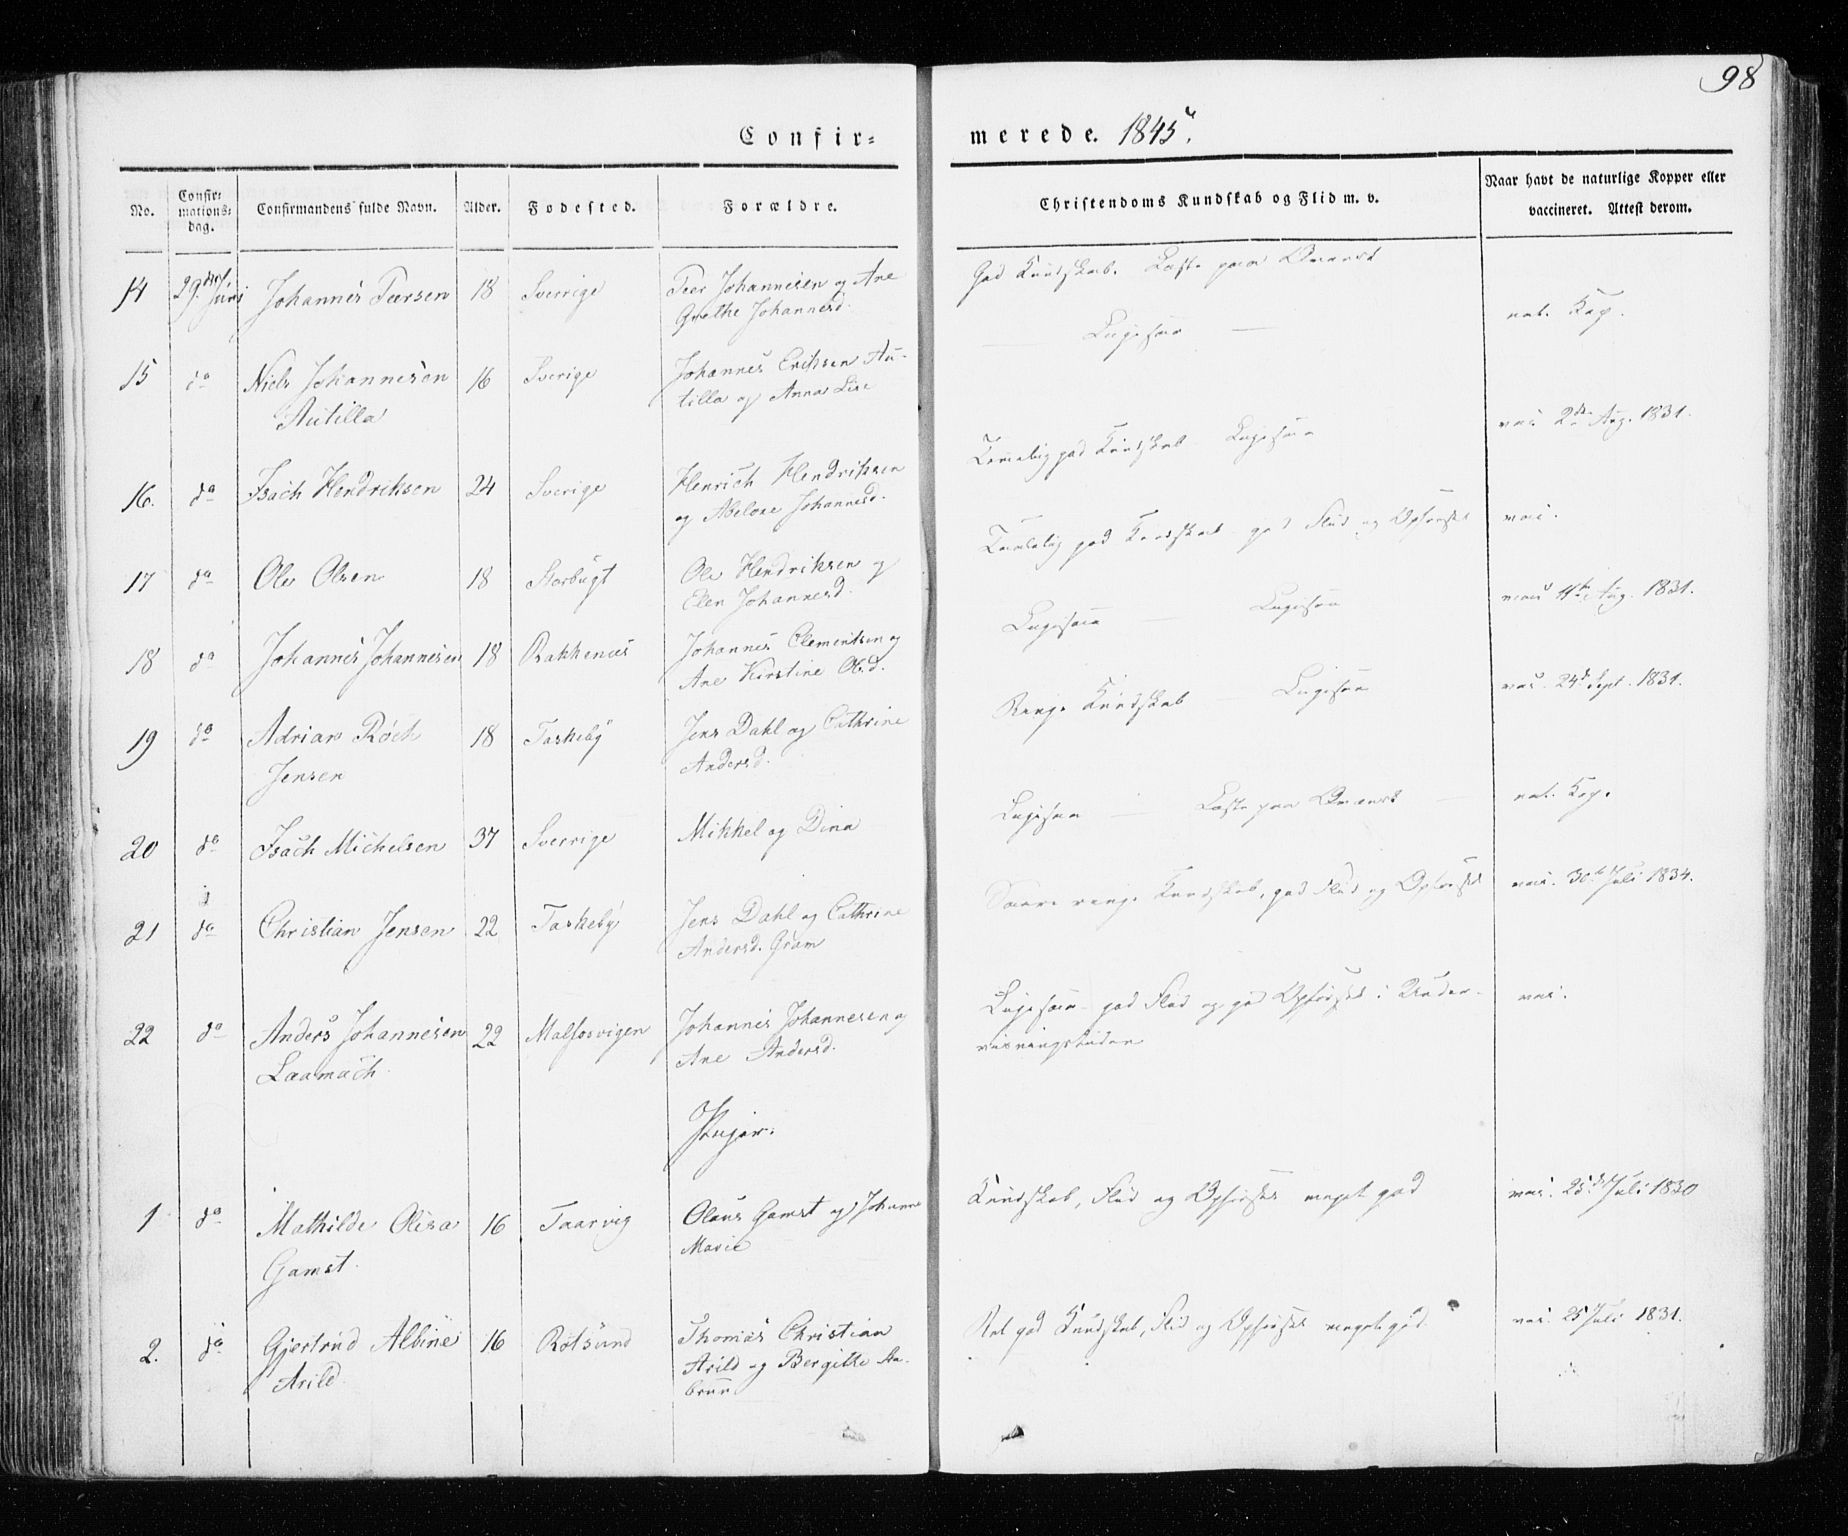 98
Confir= merede. 1845.
No. Confir= mations= dag. Confirmandens fulde Navn. Alder. Fødested. Forældre. Christendoms Kundskab og Flid m. v. Naar havt de naturlige Kopper eller vaccineret. Attest derom.
14 29de Juni Johannes Peersen 18 Sverrige Peer Johannesen og Ane God Kundskab. Læste paa Qvænsk nat. Kop.
Grethe Johannesd.
15 do Niels Johannesen 16 Sverige Johannes Eriksen Au- — Ligesaa — vac. 2den Aug. 1831.
Autilla tilla og Anna Lise
16. do Isach Hendriksen 24 Sverige Henrich Hendriksen Temmelig god Kundskab Ligesaa vac.
og Abelone Johannesd.
17 do Ole Olsen 18 Storbugt Ole Hendriksen og Temmelig god Kundskab god Flid og Opførsel vac. 11te Aug. 1831.
Elen Johannesd.
18 do Johannes Johannesen 18 Bakkenæs Johannes Clementsen og Ligesaa — Ligesaa vac. 24de Sept. 1831.
Ane Kirstine Olsd.
19 do Adrian Røch 18 Taskeby Jens Dahl og Cathrine Ringe Kundskab — Ligesaa
Jensen Andersd.
20 do Isach Michelsen 37 Sverrige Mikkel og Dina Ligesaa — Læste paa Qvænsk — nat. Kop.
21 do Christian Jensen 22 Taskeby Jens Dahl og Cathrine Saare ringe Kundskab, god Flid og Opførsel vac. 30te Juli 1834.
Andersd. Gram
22 do Anders Johannesen 22 Malfosvigen Johannes Johannesen og Ligesaa god Flid og god Opførsel i Under- vac.
Laamach Ane Andersd. viisningstiden
Piger.
1 do Mathilde Olisa 16 Taarvig Olaus Gamst og Johanne Kundskab, Flid og Opførsel meget god vac. 25de Juli 1830
Gamst. Marie
2. do Gjertrud Albine 16 Rotsund Thomas Christian god Kundskab, Flid og Opførsel meget god. vac. 25 Juli 1831.
Arild. Arild og Bergitte Aa-
bruu